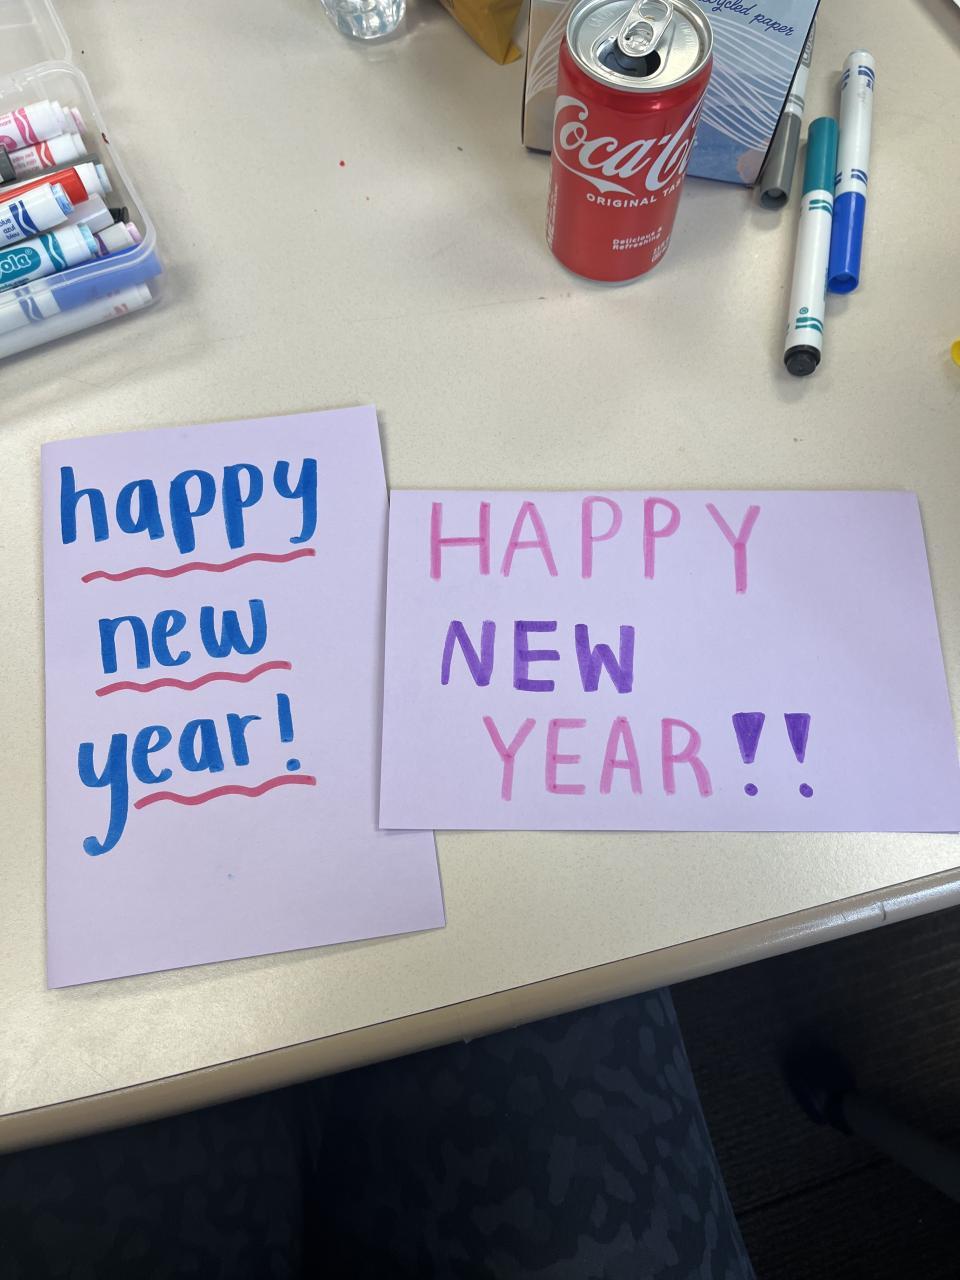 recycled paper
Coca-Cola
ORIGINAL TASTE
Delicious &
Refreshing
blue
azul
bleu
happy
new
year!
HAPPY
NEW
YEAR!!